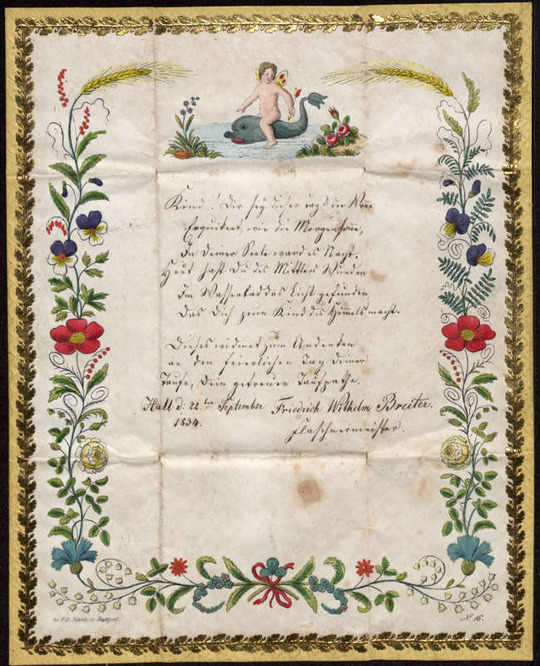 Kind! Dir sey dieser Tag die
wie die Morgensonne,
In Deiner Seele ward es Nacht.
Heut hast Du des Mittlers Wunden
Im Wasserbad das Licht gefunden
Das Dich zum Kind des Himmels macht.
Dieses widmet zum Andenken
an den feierlichen Tag Deiner
Taufe, Dein getreuer Taufpathe.
Hall d: 22ten September Friedrich Wilhelm Breiter.
1834. Flaschnermeister.
in Stuttgart.
No 16.